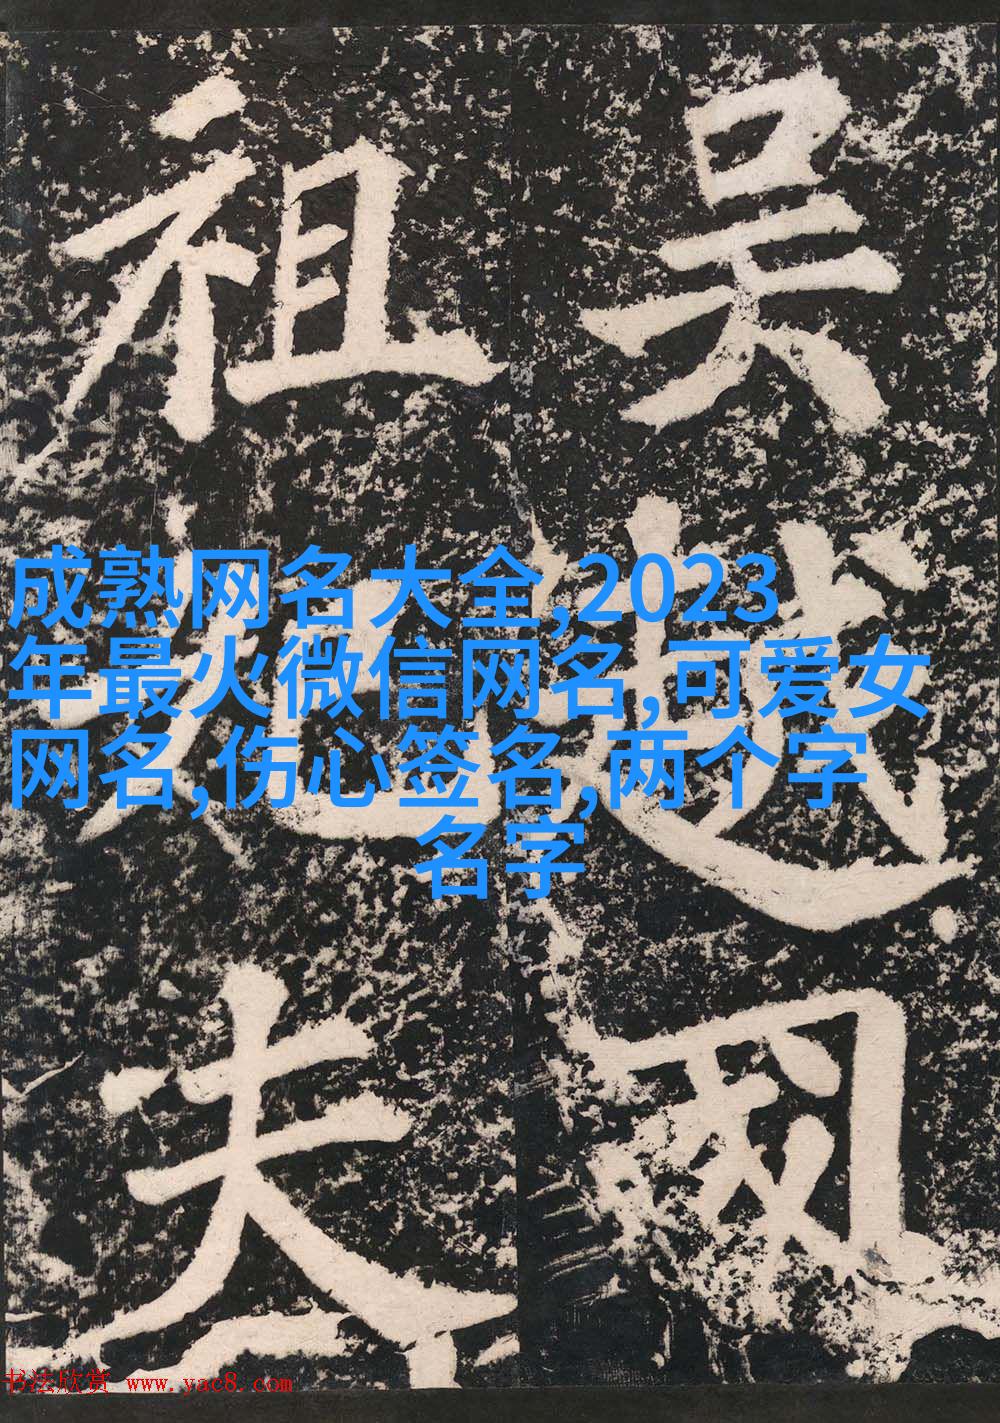 吴越
祖
夫
成熟网名大全,2023
年最火微信网名,可爱女
网名,伤心签名,两个字
名字
书法欣赏 www.yac8.com